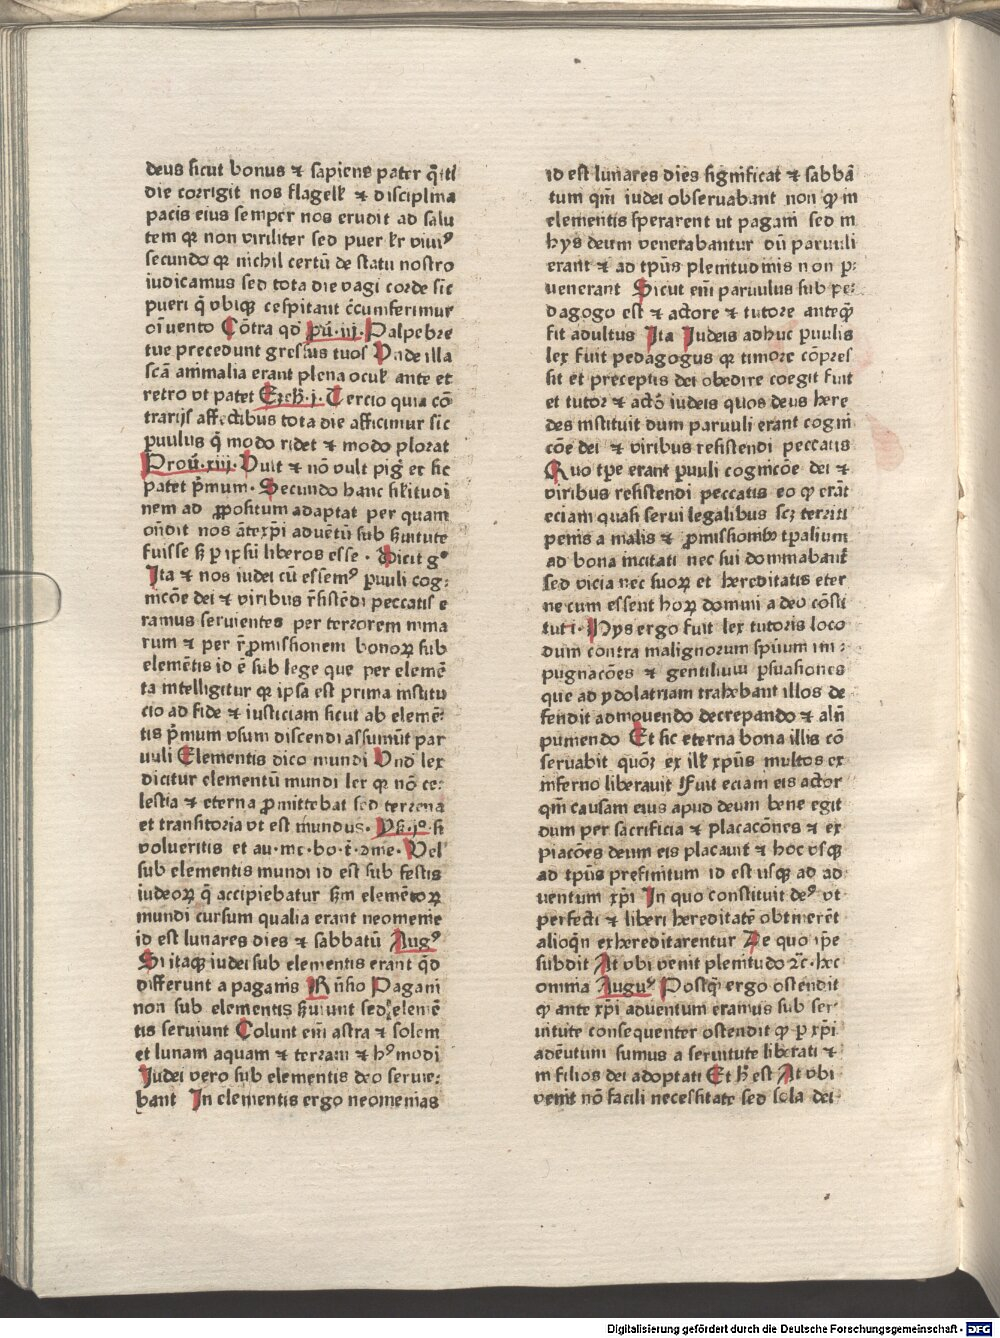 deus sicut bonus ⁊ sapiens pater q̄ti
die corrigit nos flagell' ⁊ disciplina
pacis eius semper nos erudit ad salu
tem qꝛ non viriliter sed puer lr̄ viuiꝰ
secundo qꝛ nichil certū de statu nostro
iudicamus sed tota die vagi corde sic
pueri q̄ vbiqꝫ cespitant c̄cumferimur
oī vento Cōtra qd̓ pū. iij. Palpebre
tue precedunt gressus tuos Vnde illa
scā animalia erant plena ocul' ante et
retro vt patet Ezech. j. Tercio quia cō
trarijs affectibus tota die afficimur sic
ꝑuulus q̄ modo ridet ⁊ modo plorat
Prou̓. xiij. Vult ⁊ nō vult pig̓ et sic
patet p̄mum. Secundo hanc sil'itudi
nem ad ꝓpositum adaptat per quam
on̄dit nos ān̄texp̄i aduētū sub ẜuitute
fuisse ẜ ꝑ ip̄sū liberos esse. Dicit gͦ
Ita ⁊ nos iudei cū essemꝰ ꝑuuli cog:
nicōe dei ⁊ viribus r̄sistēdi peccatis e
ramus seruientes per terrorem mina
rum ⁊ per r̄ꝓmissionem bonoꝝ sub
elemētis id ē sub lege que per elemē
ta intelligitur qꝛ ipsa est prima institu
cio ad fidē ⁊ iusticiam sicut ab elemē:
tis p̄mum vsum discendi assumūt par
uuli Elementis dico mundi Vnd̓ lex
dicitur elementū mundi lex qꝛ nō ce:
lestia ⁊ eterna ꝓmittebat sed terrena
et transitoria vt est mundus. Ys̄. jͦ. si
volueritis et au. me. bo. t̄. ꝯme. Vel
sub elementis mundi id est sub festis
iudeoꝝ q̄ accipiebatur ẜm elemētoꝝ
mundi cursum qualia erant neomenie
id est lunares dies ⁊ sabbatū Augꝰ
Si itaqꝫ iudei sub elementis erant qd̓
differunt a paganis Rn̄sio Pagani
non sub elementis ẜuiunt sed elemē
tis seruiunt Colunt em̄ astra ⁊ solem
et lunam aquam ⁊ terram ⁊ hꝰmodi
Iudei vero sub elementis deo seruie:
bant In elementis ergo neomenias
id est lunares dies significat ⁊ sabbā
tum qm̄ iudei obseruabant non ꝙ in
elementis sperarent ut pagani sed in
hys deum venerabantur dū paruuli
erant ⁊ ad tp̄us plenitudinis non p:
uenerant Sicut em̄ paruulus sub pe:
dagogo est ⁊ actore ⁊ tutore anteq̄
fit adultus Ita Iudeis adhuc ꝑuulis
lex fuit pedagogus qꝛ timore cōpres
sit et preceptis dei obedire coegit fuit
et tutor ⁊ actor̓ iudeis quos deus here
des instituit dum paruuli erant cogni
cōe dei ⁊ viribus resistendi peccatis
Quo tp̄e erant ꝑuuli cognicōe dei ⁊
viribus resistendi peccatis eo ꝙ erāt
eciam quasi serui legalibus scꝫ territi
penis a malis ⁊ ꝓmissionibꝰ tꝑalium
ad bona incitati nec sui dominabant̄
sed vicia nec suoꝝ et hereditatis eter
ne cum essent hoꝝ domini a deo cōsti
tuti. Hys ergo fuit lex tutoris loco
dum contra malignorum spūum im:
pugnacōes ⁊ gentilium ꝑsuasiones
que ad ydolatriam trahebant illos de
fendit admouendo decrepando ⁊ aln̄
pumendo Et sic eterna bona illis cō
seruabit quoꝝ ex ill' xp̄us multos ex
inferno liberauit Fuit eciam eis actor
qm̄ causam eius apud deum bene egit
dum per sacrificia ⁊ placacōnes ⁊ ex
piacōes deum eis placauit ⁊ hoc vsqꝫ
ad tp̄us prefinitum id est usqꝫ ad ad
uentum xp̄i In quo constituit deꝰ vt
perfecti ⁊ liberi hereditatē obtinerēt
alioqn̄ exhereditarentur De quo ip̄e
subdit At vbi venit plenitudo ⁊c. hec
omnia Auguꝰ Postq̄ ergo ostendit
ꝙ ante xp̄i aduentum eramus sub ser
uitute consequenter ostendit ꝙ ꝑ xp̄i
aduētum sumus a seruitute liberati ⁊
in filios dei adoptati Et h̓ est At vbi
venit nō facili necessitate sed sola dei
Digitalisierung gefördert durch die Deutsche Forschungsgemeinschaft - DFG